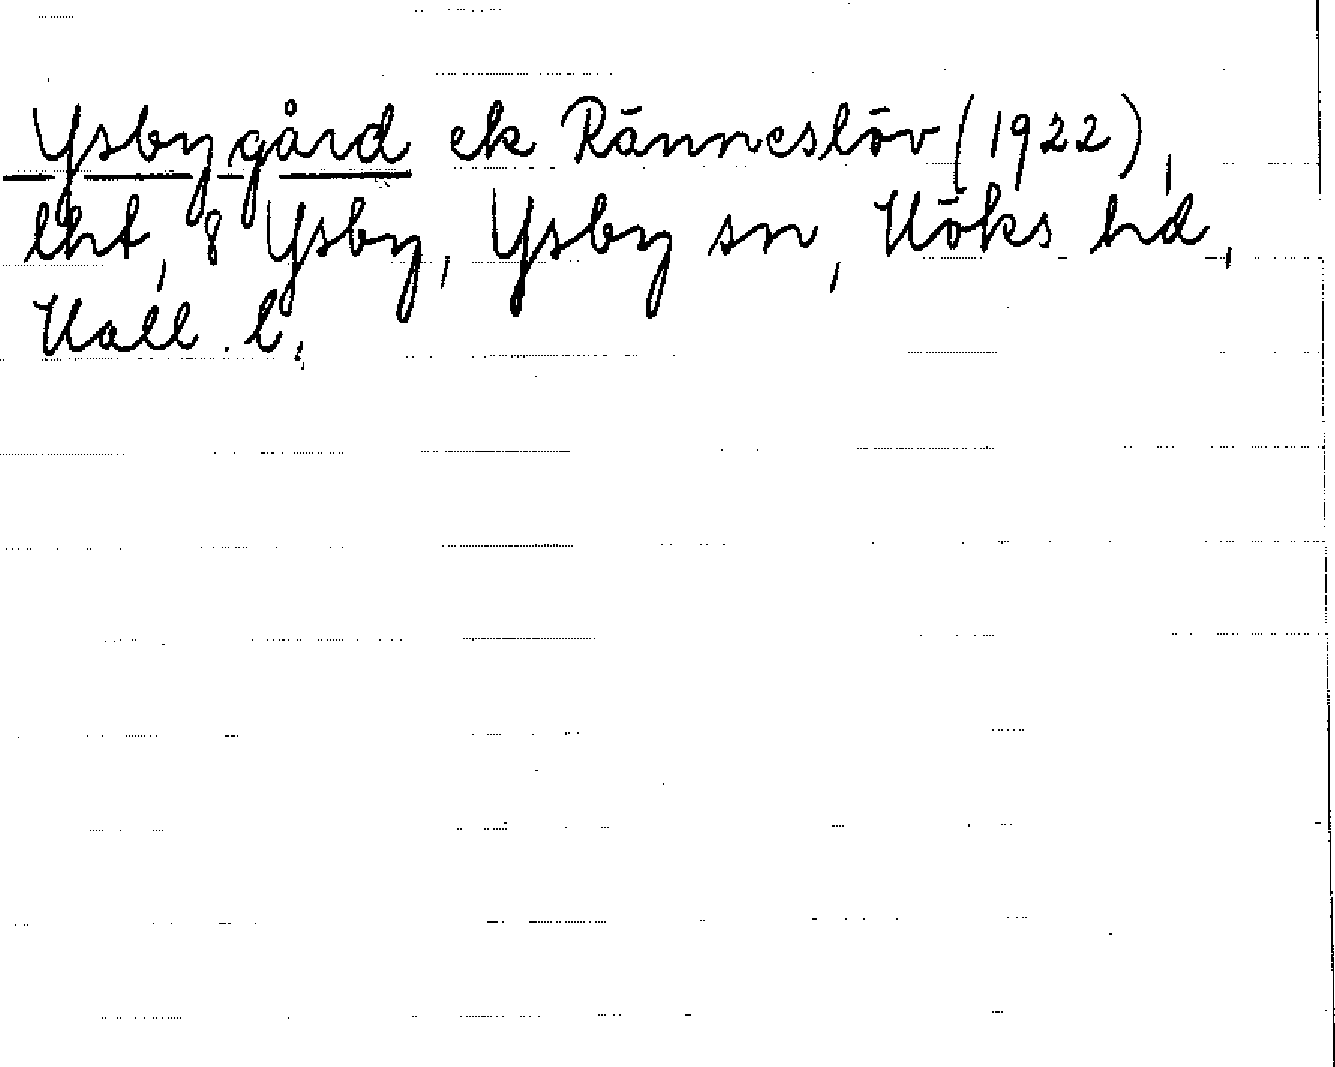 Ysbygård ek Ränneslöv (1922),
lht, 8 Ysby, Ysby sn, Höks hd,
Hall. l.